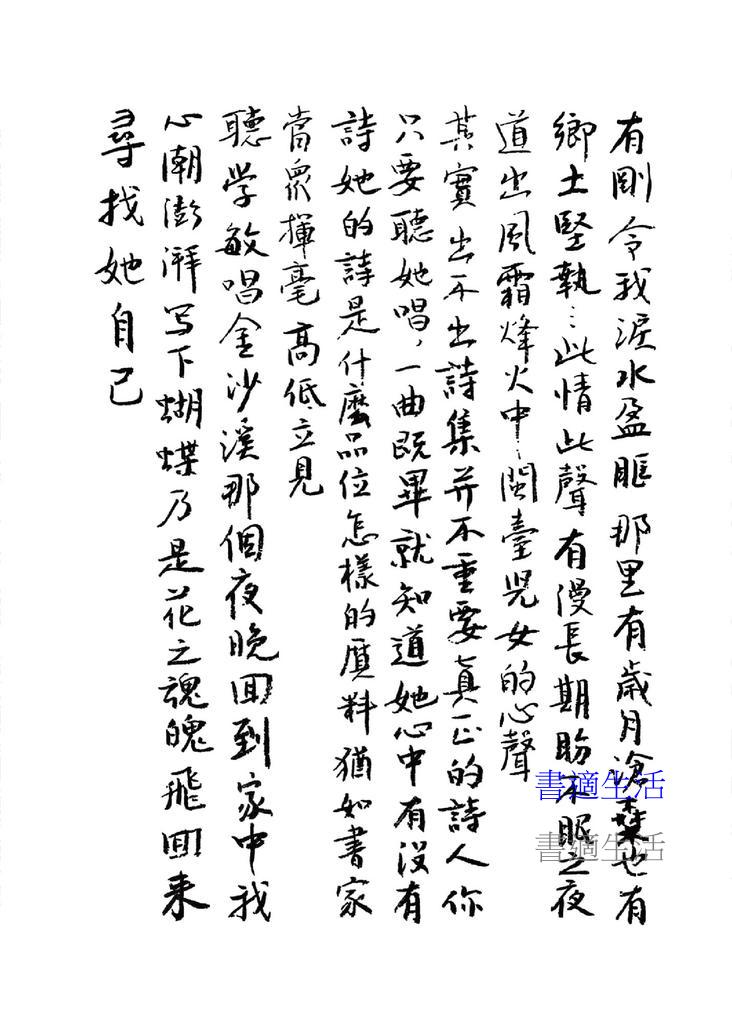 有剛令我淚水盈眶那里有歲月滄桑也有
鄉土堅執…此情此聲有漫長期盼不眠之夜
道出風霜烽火中、閩臺兒女的心聲
其實出不出詩集并不重要真正的詩人你
只要聽她唱，一曲既畢就知道她心中有沒有
詩她的詩是什麼品位怎樣的質料猶如書家
當衆揮毫高低立見
聽学敏唱金沙溪那個夜晚回到家中我
心潮澎湃写下蝴蝶乃是花之魂魄飛回来
尋找她自己
書適生活
書適生活